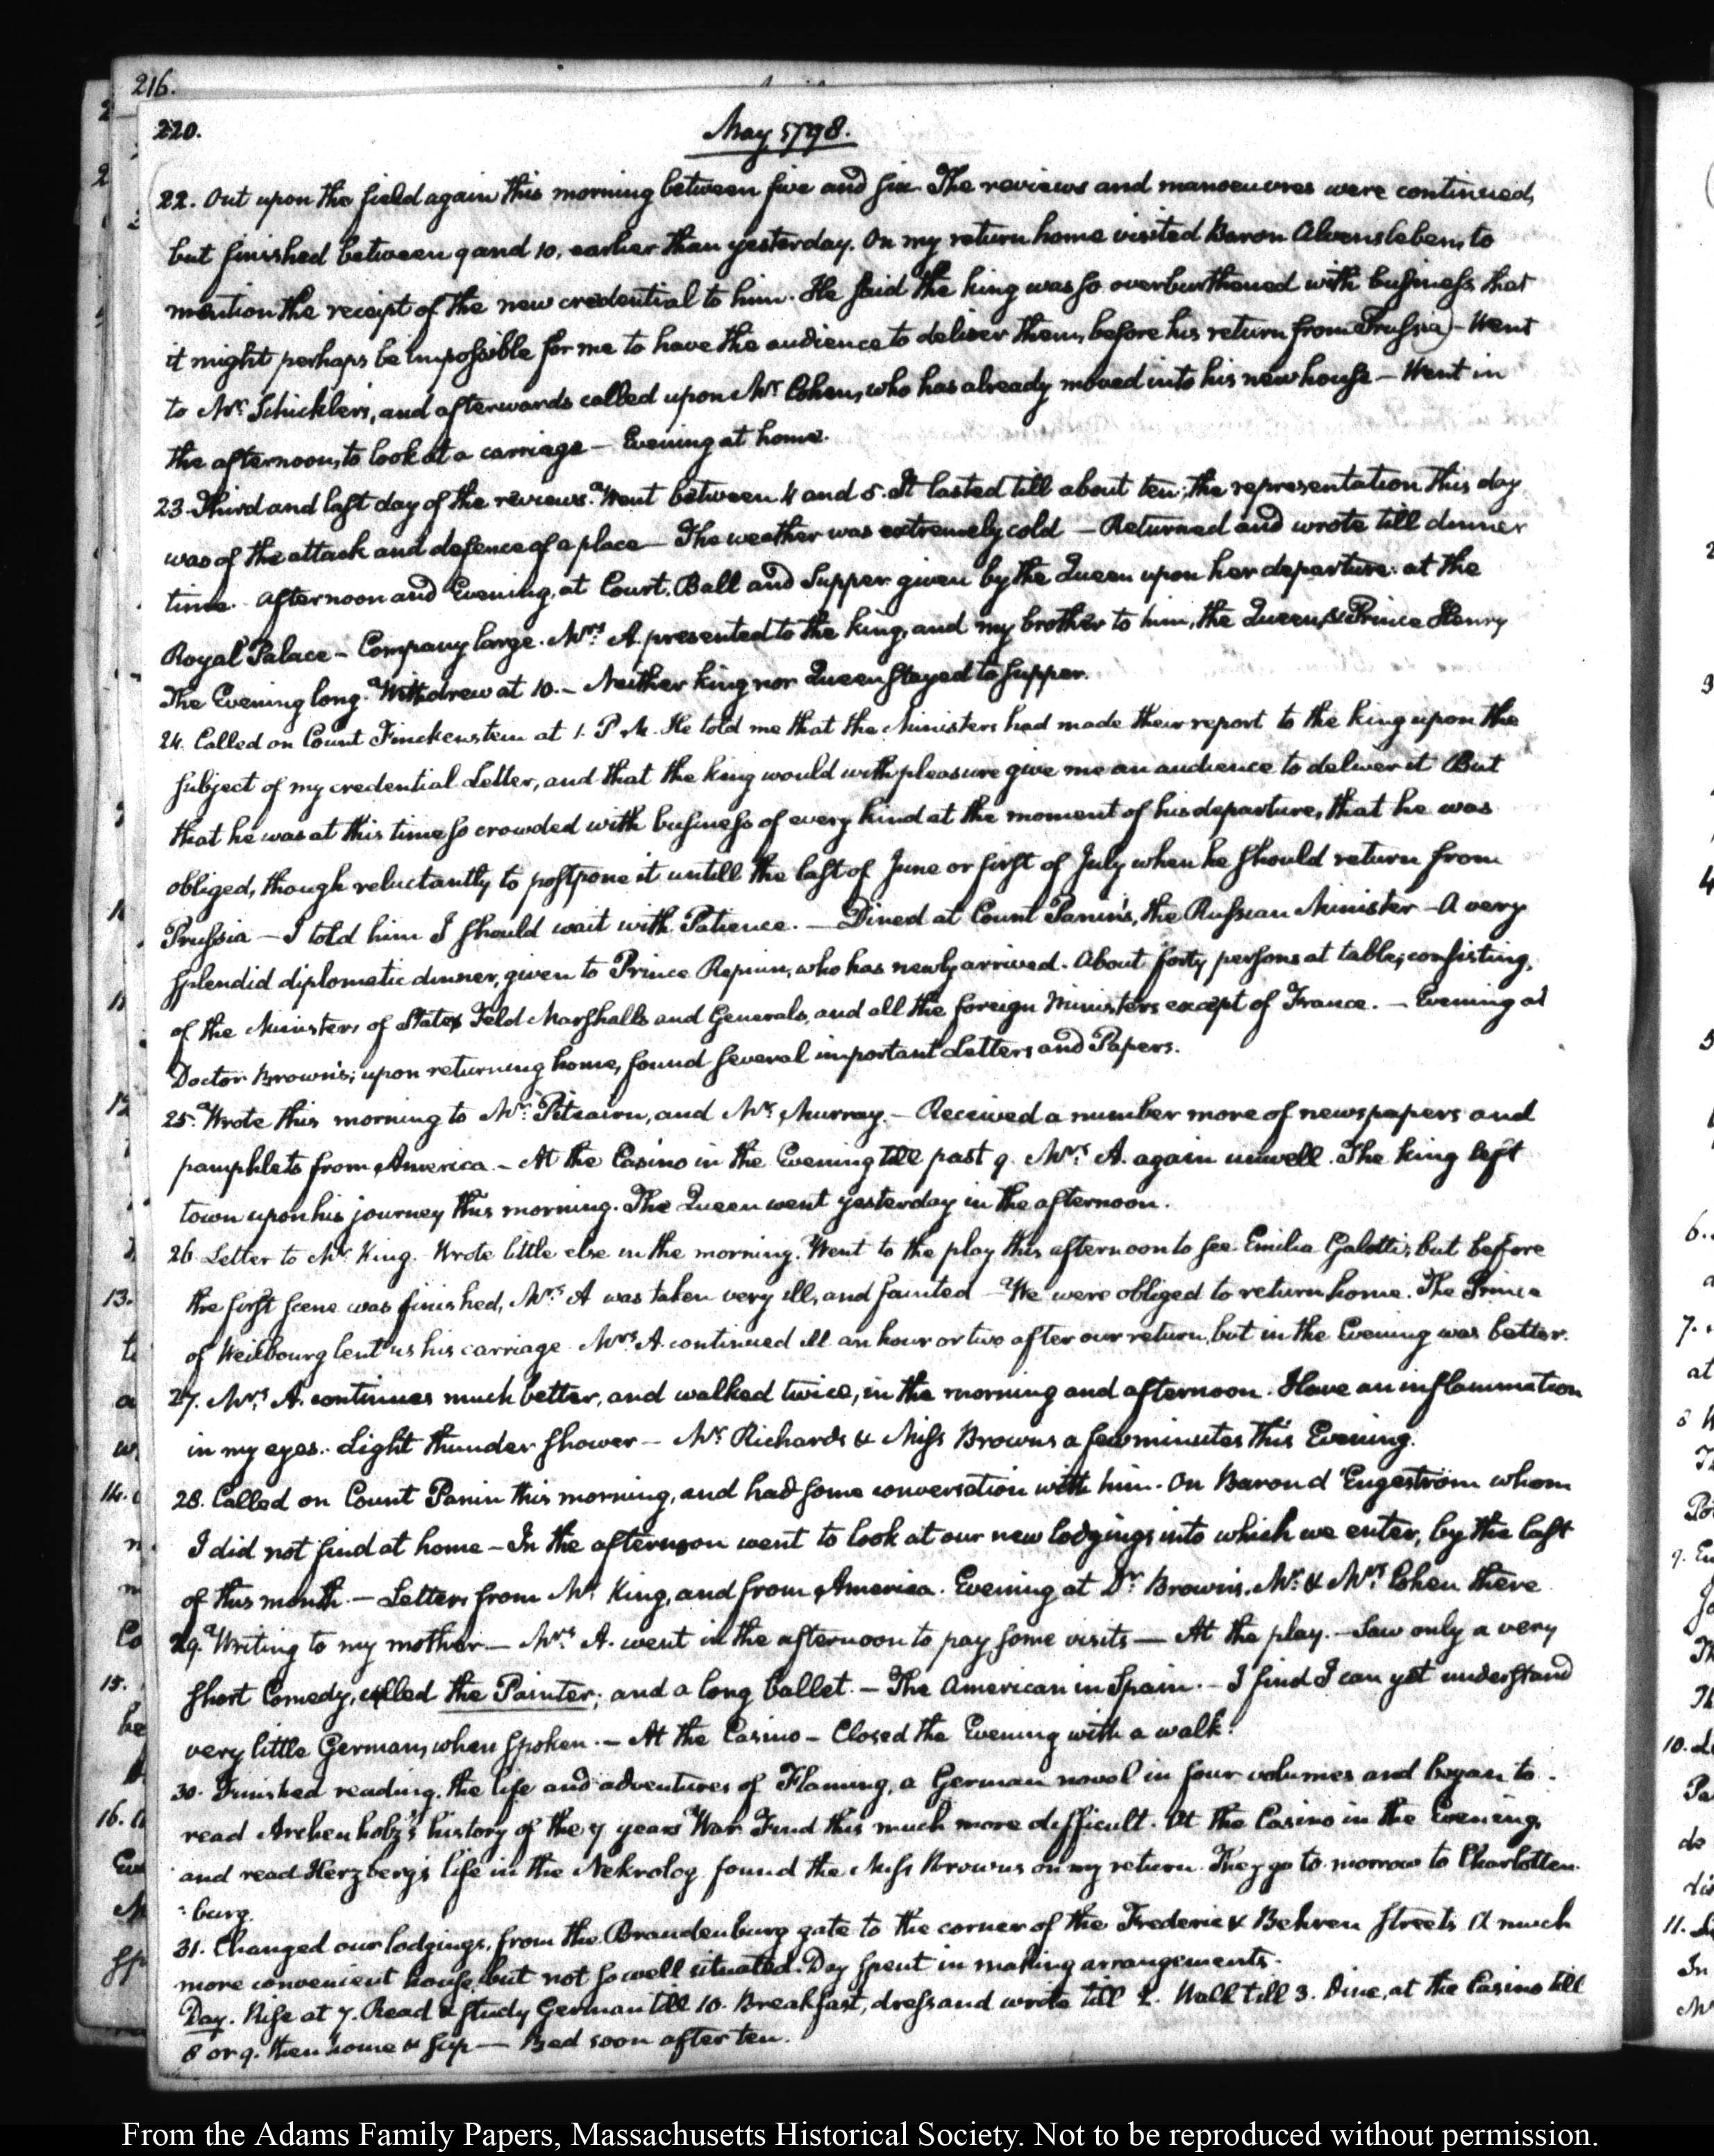 216.
220.
May 1798.
22. Out upon the field again this morning between five and six. The reviews and manoeuvres were continued,
but finished between 9 and 10. earlier than yesterday. On my return home visited Baron Alvensleben, to
mention the receipt of the new credential to him. He said the king was so overburthened with business that
it might perhaps be impossible for me to have the audience to deliver them, before his return from Prussia) — Went
to Mr. Schickler's, and afterwards called upon Mr. Cohen, who has already moved into his new house — Went in
the afternoon, to look at a carriage — Evening at home.
23. Third and last day of the reviews. Went between 4 and 5. It lasted till about ten; the representation this day
was of the attack and defence of a place — The weather was extremely cold — Returned and wrote till dinner
time. Afternoon and Evening, at Court. Ball and Supper given by the Queen upon her departure. at the
Royal Palace — Company large. Mrs. A. presented to the king, and my brother to him, the Queen, & Prince Henry
The Evening long. Withdrew at 10. — Neither king nor Queen stayed to supper.
24. Called on Count Finckenstein at 1. P.M. He told me that the Ministers had made their report to the king upon the
subject of my credential Letter, and that the king would with pleasure give me an audience to deliver it But
that he was at this time so crowded with business of every kind at the moment of his departure, that he was
obliged, though reluctantly to postpone it untill the last of June or first of July when he should return from
Prussia — I told him I should wait with Patience. — Dined at Count Panin's, the Russian Minister — A very
splendid diplomatic dinner, given to Prince Repnin, who has newly arrived. About forty persons at table; consisting,
of the Ministers of State, Feld Marshalls and Generals, and all the foreign Ministers except of France. — Evening at
Doctor Brown's; upon returning home, found several important Letters and Papers.
25. Wrote this morning to Mr. Pitcairn, and Mr. Murray. — Received a number more of newspapers and
pamphlets from America. — At the Casino in the Evening till past 9. Mrs. A. again unwell. The king left
town upon his journey this morning. The Queen went yesterday in the afternoon.
26. Letter to Mr. King. Wrote little else in the morning. Went to the play this afternoon to see Emilia Galotti; but before
the first scene was finished, Mrs. A was taken very ill, and fainted — We were obliged to return home. The Prince
of Weilbourg lent us his carriage. Mrs. A. continued ill an hour or two after our return, but in the Evening was better.
27. Mrs. A. continues much better, and walked twice, in the morning and afternoon. Have an inflammation
in my eyes. Light thunder shower — Mr. Richards & Miss Browns a few minutes this Evening.
28. Called on Count Panin this morning, and had some conversation with him. On Baron d'Engeström whom
I did not find at home — In the afternoon went to look at our new lodgings into which we enter, by the last
of this month. — Letters from Mr. King, and from America. Evening at Dr. Brown's. Mr. & Mrs. Cohen there
29. Writing to my mother. — Mrs. A. went in the afternoon to pay some visits — At the play. — Saw only a very
short Comedy, called the Painter; and a long ballet. — The American in Spain. — I find I can yet understand
very little German, when spoken. — At the Casino — Closed the Evening with a walk.
30. Finished reading, the life and adventures of Flaming, a German novel in four volumes and began to
read Archenholz's history of the 7 years War. Find this much more difficult. At the Casino in the Evening,
and read Herzberg's life in the Nekrolog. found the Miss Browns on my return. They go to-morrow to Charlotten-
:burg.
31. Changed our lodgings, from the Brandenburg gate to the corner of the Frederic & Behren streets. A much
more convenient house, but not so well situated. Day spent in making arrangements.
Day. Rise at 7. Read & study German till 10. Breakfast, dress and write till 2. Walk till 3. Dine, at the Casino till
8 or 9. then home & sup — Bed soon after ten.
From the Adams Family Papers, Massachusetts Historical Society. Not to be reproduced without permission.